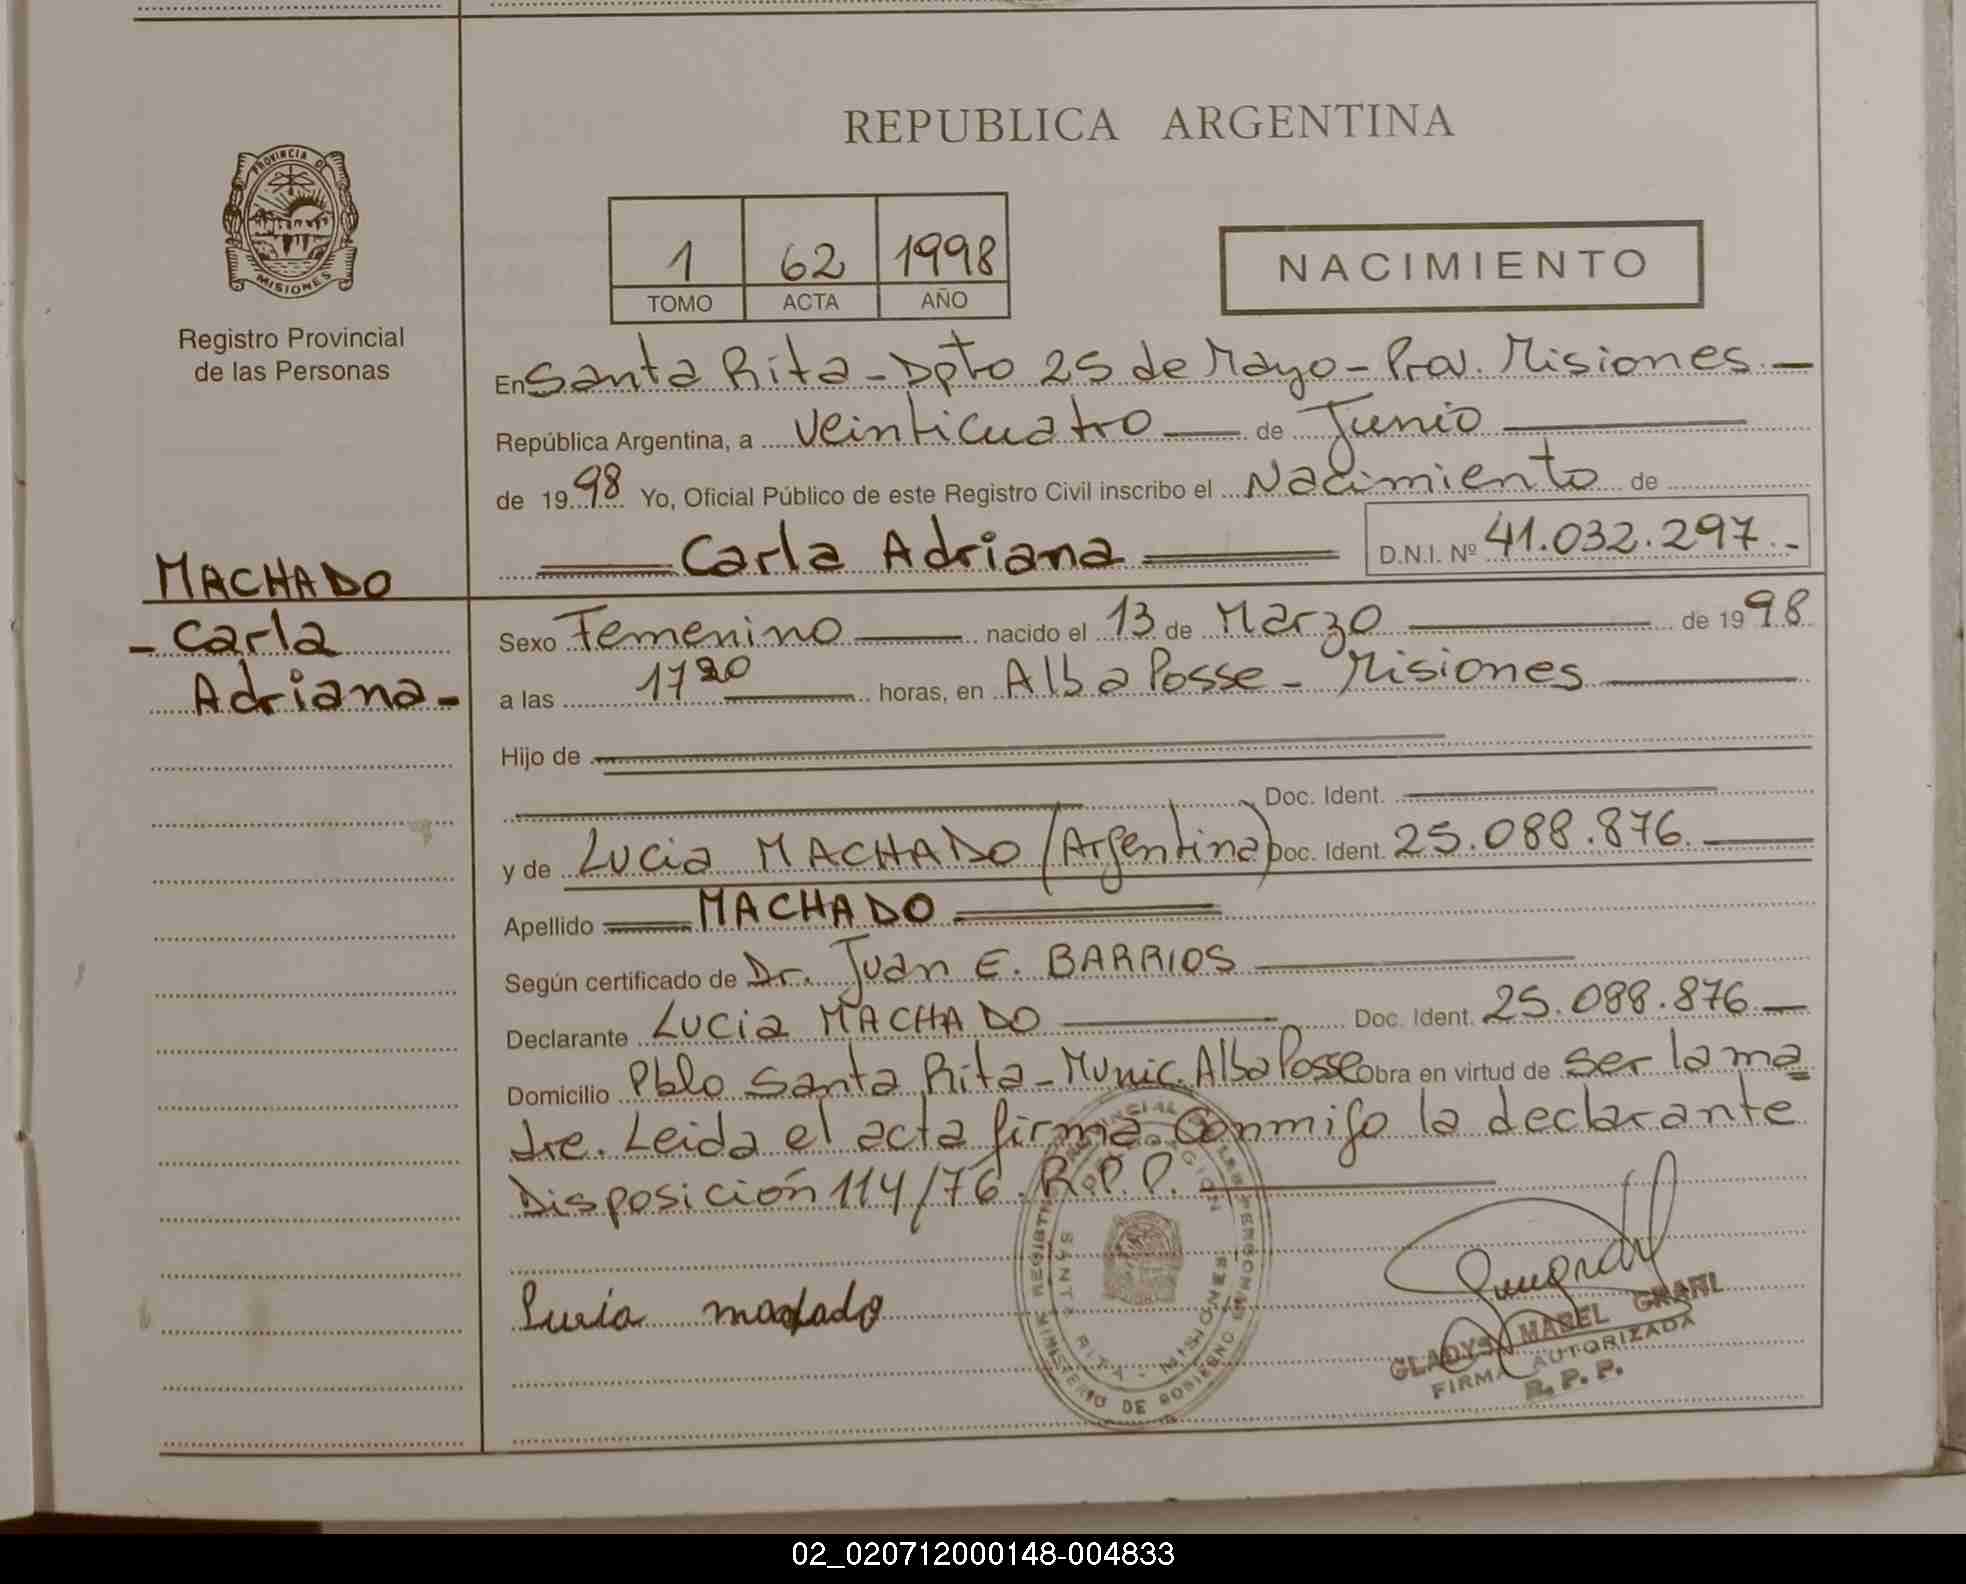 REPUBLICA ARGENTINA
PROVINCIA DE
MISIONES
Registro Provincial
de las Personas
1 62 1998
TOMO ACTA AÑO
NACIMIENTO
En Santa Rita - Dpto 25 de Mayo - Prov. Misiones. —
República Argentina, a veinticuatro — de Junio —
de 1998 Yo, Oficial Público de este Registro Civil inscribo el Nacimiento de
Carla Adriana
D.N.I. Nº 41.032.297.-
MACHADO
- Carla
Adriana -
Sexo Femenino — nacido el 13 de Marzo — de 1998
a las 17 horas, en Alba Posse - Misiones —
Hijo de
Doc. Ident.
y de Lucia MACHADO (Argentina) Doc. Ident. 25.088.876. —
Apellido MACHADO
Según certificado de Dr. Juan E. BARRIOS —
Declarante Lucia MACHADO — Doc. Ident. 25.088.876 —
Domicilio Pblo Santa Rita - Munic. Alba Posse Obra en virtud de ser la ma
dre. Leida el acta firma conmigo la declarante
Disposición 114/76. R.P.P. —
Lucia machado
SANTA RITA - MISIONES
MINISTERIO DE GOBIERNO
GLADYS MABEL
FIRMA AUTORIZADA
R. P. P.
02_020712000148-004833